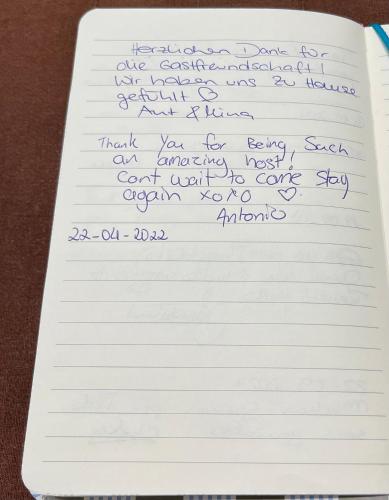 Herzlichen Dank für
die Gastfreundschaft!
Wir haben uns zu Hause
gefühlt ♡
& Mina
Thank You for Being Such
an amazing host!
Cant wait to come stay
again xoxo ♡.
Antonio
22-04-2022